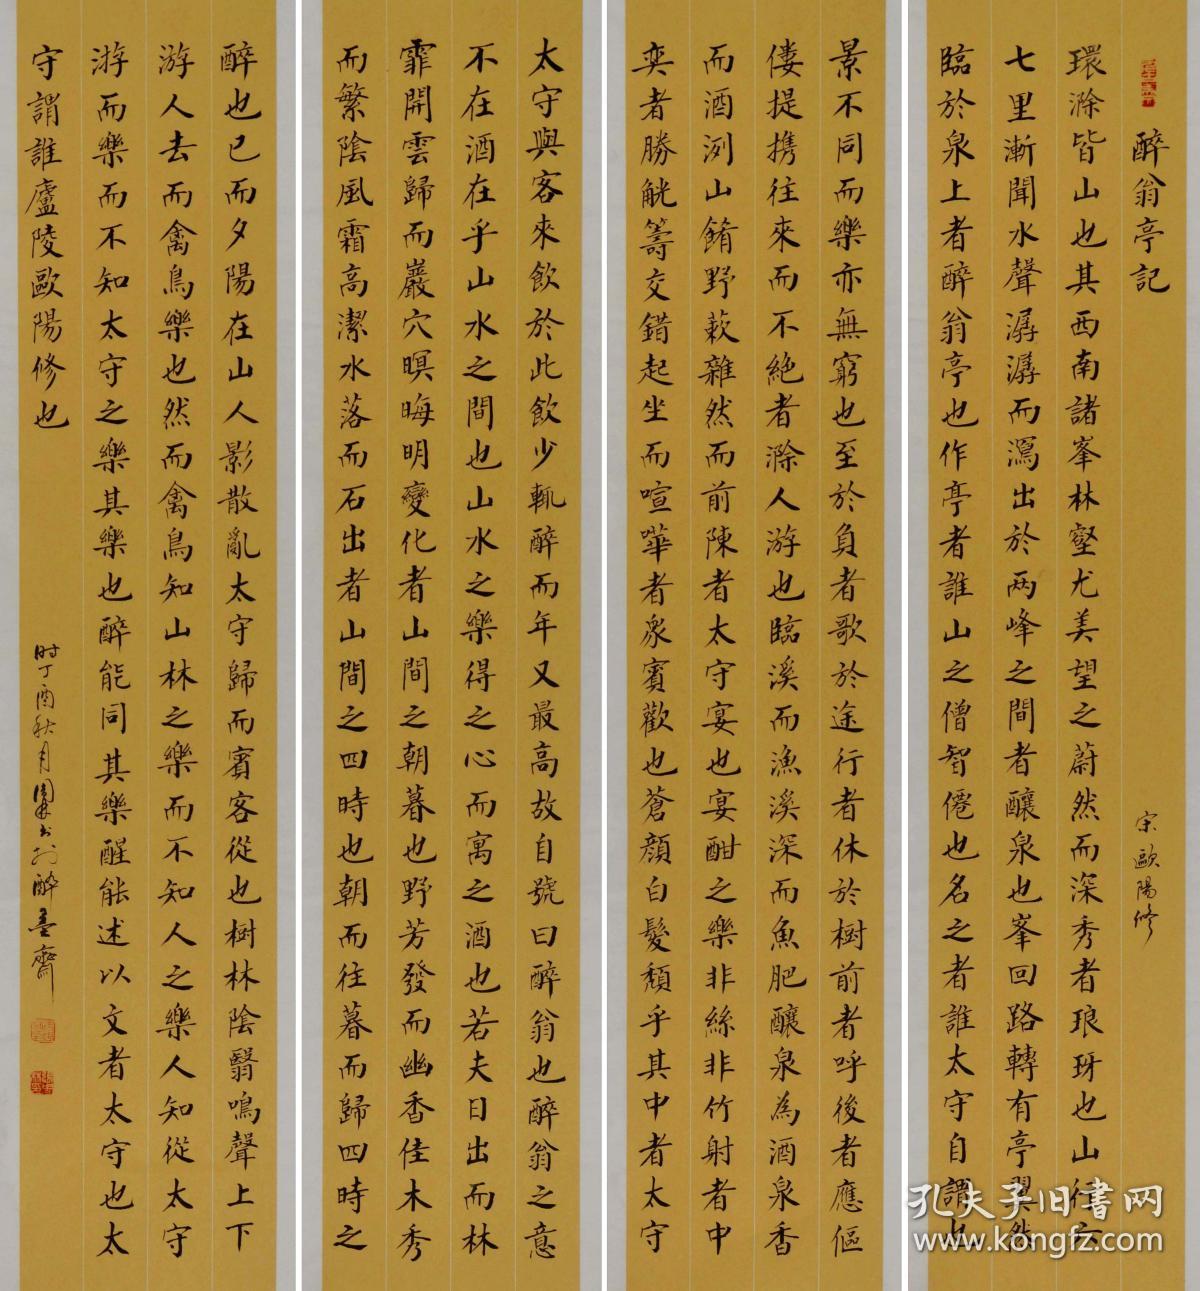 醉翁亭記
宋歐陽修
環滁皆山也其西南諸峯林壑尤美望之蔚然而深秀者琅玡也山行六
七里漸聞水聲潺潺而瀉出於两峰之間者釀泉也峯回路轉有亭翼然
臨於泉上者醉翁亭也作亭者誰山之僧智僊也名之者誰太守自謂也
太守與客來飲於此飲少輒醉而年又最高故自號曰醉翁也醉翁之意
不在酒在乎山水之間也山水之樂得之心而寓之酒也若夫日出而林
霏開雲歸而巖穴暝晦明變化者山間之朝暮也野芳發而幽香佳木秀
而繁陰風霜高潔水落而石出者山間之四時也朝而往暮而歸四時之
景不同而樂亦無窮也至於負者歌於途行者休於樹前者呼後者應傴
僂提携往來而不絕者滁人游也臨溪而漁溪深而魚肥釀泉為酒泉香
而酒洌山餚野蔌雜然而前陳者太守宴也宴酣之樂非絲非竹射者中
奕者勝觥籌交錯起坐而喧嘩者眾賓歡也蒼顏白髮頹乎其中者太守
醉也已而夕陽在山人影散亂太守歸而賓客從也樹林陰翳鳴聲上下
游人去而禽鳥樂也然而禽鳥知山林之樂而不知人之樂人知從太守
游而樂而不知太守之樂其樂也醉能同其樂醒能述以文者太守也太
守謂誰廬陵歐陽修也
时丁酉秋月书於醉墨齋
孔夫子旧书网
www.kongfz.com